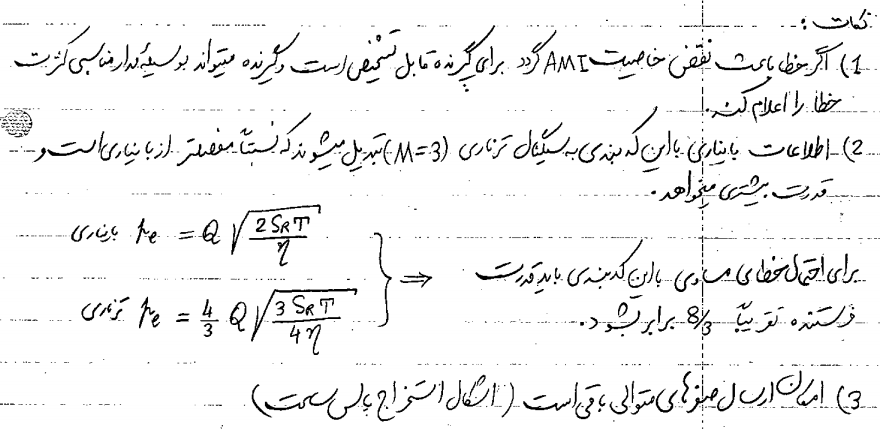 نکات:
1) اگر خطا باعث نقض خاصیت AMI گردد برای گیرنده قابل تشخیص است و گیرنده میتواند بوسیله مدار مناسبی کثرت
خطا را اعلام کند.
2) اطلاعات باینری با این کدبندی به سیگنال ترناری (M=3) تبدیل میشوند که نسبتاً مفصلتر از باینری است و
قدرت بیشتری میخواهد.
باینری Pe = Q √(2 S_R T / η)
برای احتمال خطای مساوی با این کدبندی باید قدرت ⇐
ترناری Pe = 4/3 Q √(3 S_R T / 4η)
فرستنده تقریباً 8/3 برابر بشود.
3) امکان ارسال صفرهای متوالی باقی است (اشکال استخراج پالس ساعت)